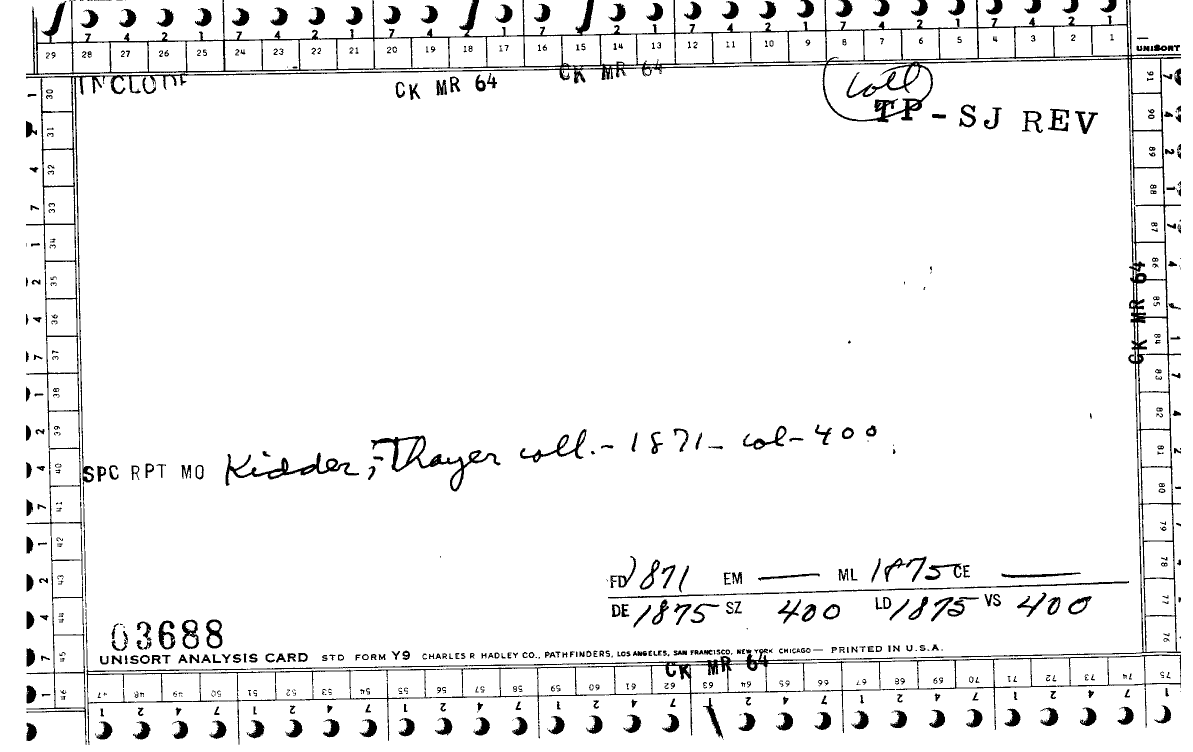 7 4 2 1 7 4 2 1 7 4 2 1 7 4 2 1 7 4 2 1 7 4 2 1
29 28 27 26 25 24 23 22 21 20 19 18 17 16 15 14 13 12 11 10 9 8 7 6 5 4 3 2 1 UNISORT
INCLUDE CK MR 64 CK MR 64 coll
TP-SJ REV
30 31 32 33 34 35 36 37 38 39 40 41 42 43 44 45 46
91 90 89 88 87 86 85 84 83 82 81 80 79 78 77 76 75
CK MR 64
SPC RPT MO Kidder, Thayer coll.-1871-col-400
FD 1871 EM — ML 1875 CE —
DE 1875 SZ 400 LD 1875 VS 400
03688
UNISORT ANALYSIS CARD STD FORM Y9 CHARLES R HADLEY CO., PATHFINDERS, LOS ANGELES, SAN FRANCISCO, NEW YORK CHICAGO — PRINTED IN U.S.A.
CK MR 64
47 48 49 50 51 52 53 54 55 56 57 58 59 60 61 62 63 64 65 66 67 68 69 70 71 72 73 74